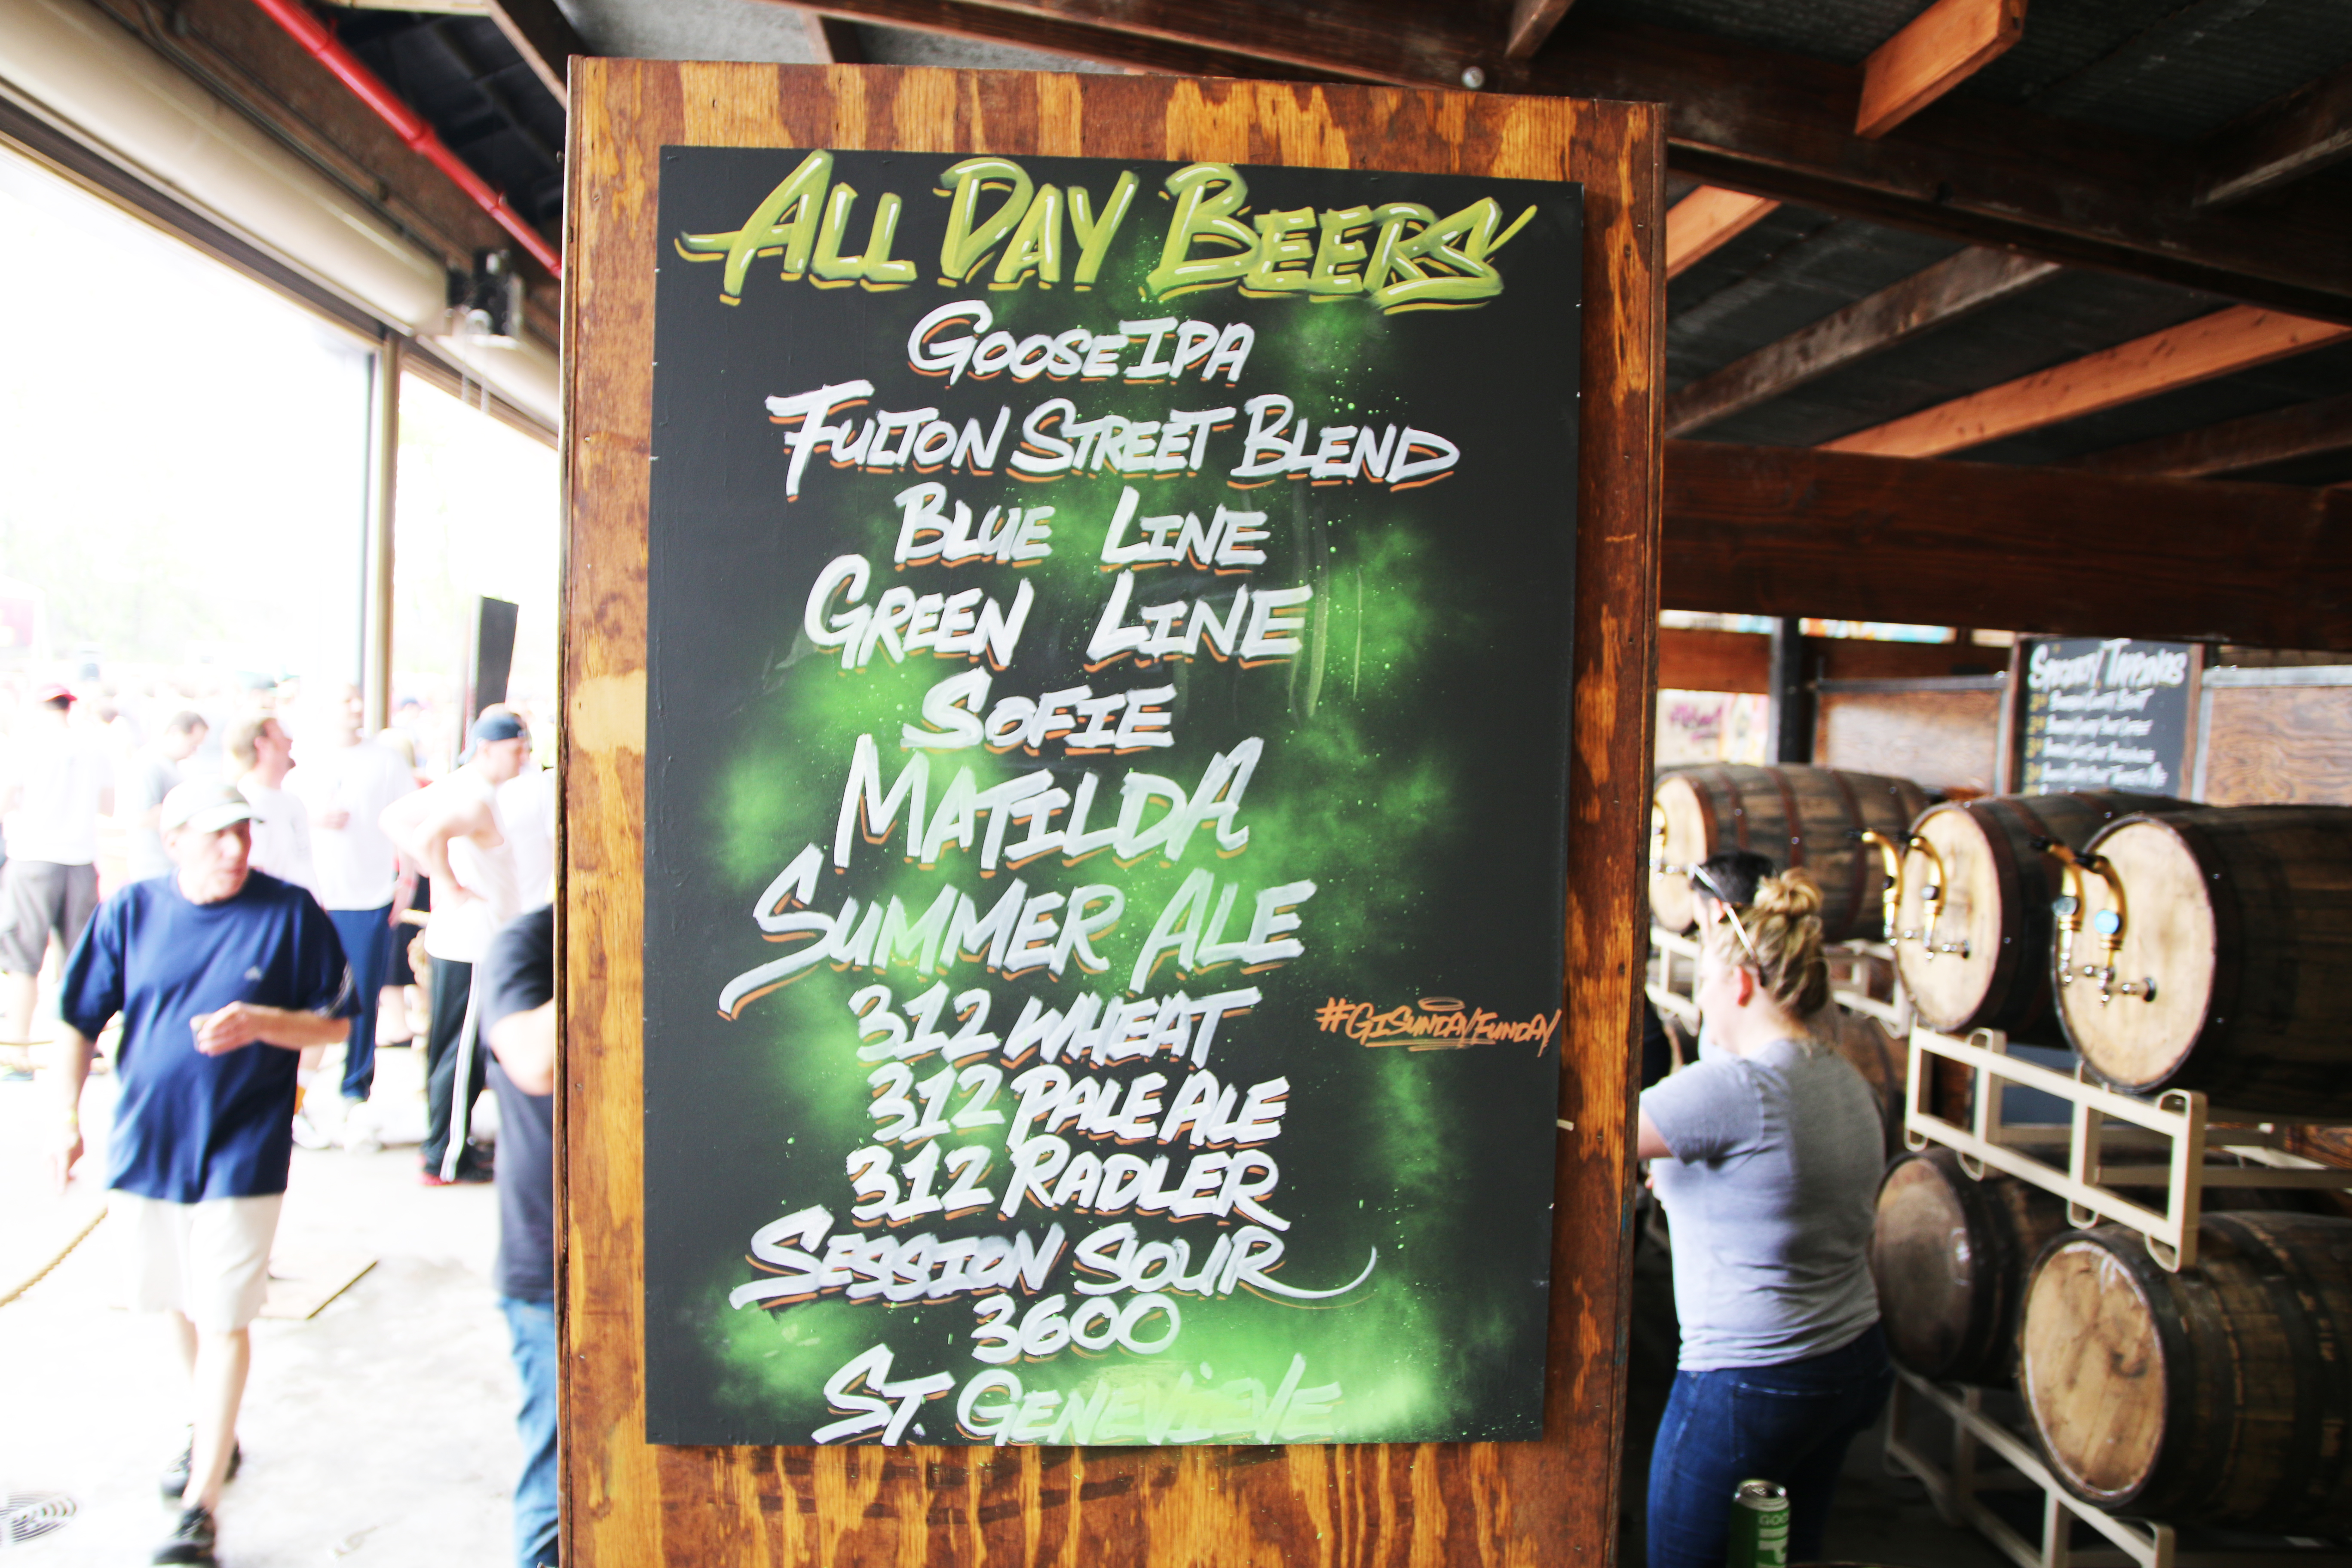 ALL DAY BEERS
GOOSE IPA
FULTON STREET BLEND
BLUE LINE
GREEN LINE
SOFIE
MATILDA
SUMMER ALE
312 WHEAT
#GISUNDAYFUNDAY
312 PALE ALE
312 RADLER
SESSION SOUR
3600
ST. GENEVIEVE
TAPPINGS